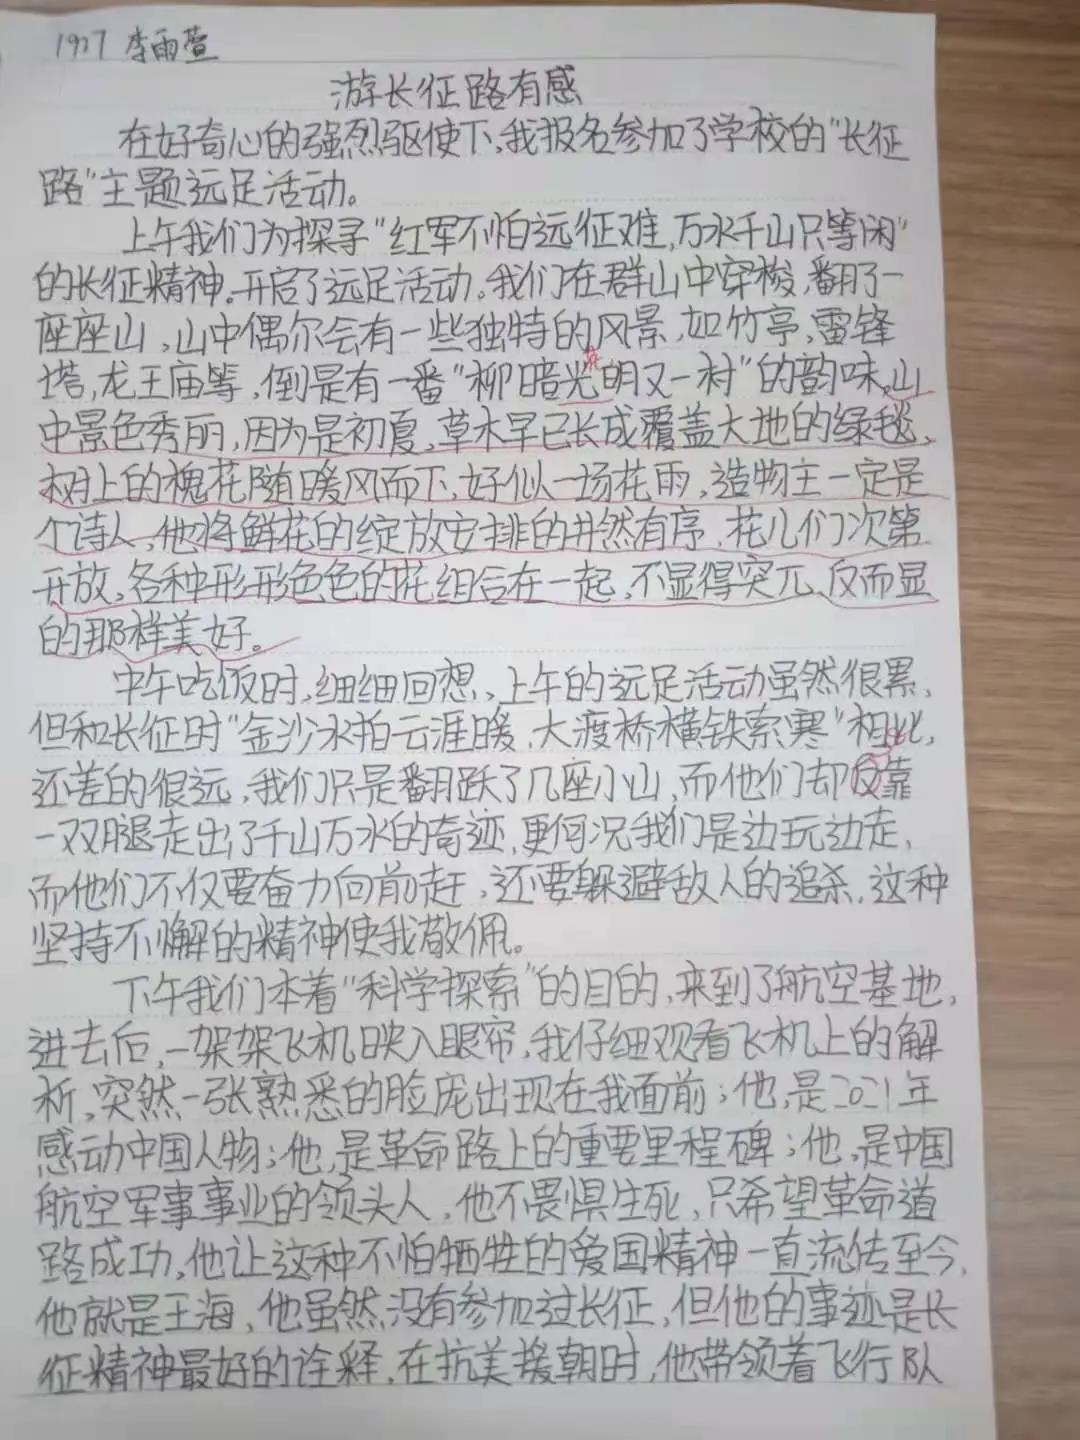 1927 李雨萱
游长征路有感
在好奇心的强烈驱使下,我报名参加了学校的“长征
路”主题远足活动。
上午我们为探寻“红军不怕远征难,万水千山只等闲”
的长征精神。开启了远足活动。我们在群山中穿梭,翻了一
座座山,山中偶尔会有一些独特的风景,如竹亭,雷锋
塔,龙王庙等,倒是有一番“柳暗光明又一村”的韵味,山
花
中景色秀丽,因为是初夏,草木早已长成覆盖大地的绿毯,
树上的槐花随暖风而下,好似一场花雨,造物主一定是
个诗人,他将鲜花的绽放安排的井然有序,花儿们次第
开放,各种形形色色的花组合在一起,不显得突兀、反而显
的那样美好。
中午吃饭时,细细回想,上午的远足活动虽然很累,
但和长征时“金沙水拍云涯暖,大渡桥横铁索寒”相比,
还差的很远,我们只是翻跃了几座小山,而他们却反靠
一双腿走出了千山万水的奇迹,更何况我们是边玩边走,
而他们不仅要奋力向前赶,还要躲避敌人的追杀,这种
坚持不懈的精神使我敬佩。
下午我们本着“科学探索”的目的,来到了航空基地,
进去后,一架架飞机映入眼帘,我仔细观看飞机上的解
析,突然一张熟悉的脸庞出现在我面前;他,是2021年
感动中国人物;他,是革命路上的重要里程碑;他,是中国
航空军事事业的领头人,他不畏惧生死,只希望革命道
路成功,他让这种不怕牺牲的爱国精神一直流传至今,
他就是王海,他虽然没有参加过长征,但他的事迹是长
征精神最好的诠释,在抗美援朝时,他带领着飞行队